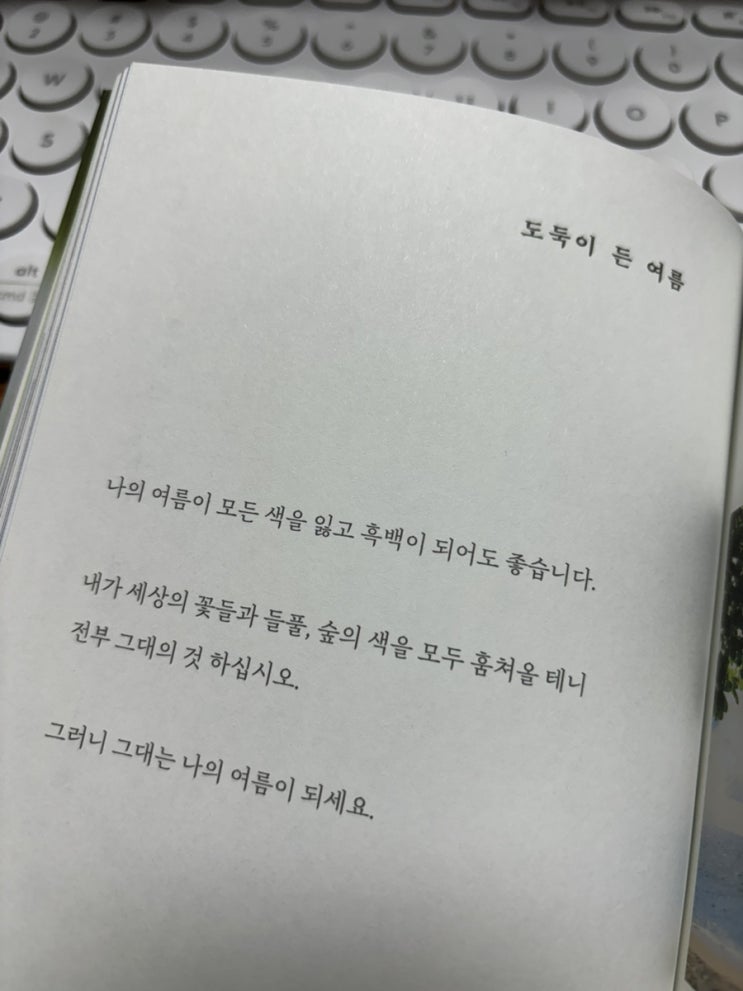 @ 2
# 3
$ 4
% 5
^ 6
& 7
* 8
( 9
) 0
W
O
P
S
alt
cmd
도둑이 든 여름
나의 여름이 모든 색을 잃고 흑백이 되어도 좋습니다.
내가 세상의 꽃들과 들풀, 숲의 색을 모두 훔쳐올 테니
전부 그대의 것 하십시오.
그러니 그대는 나의 여름이 되세요.